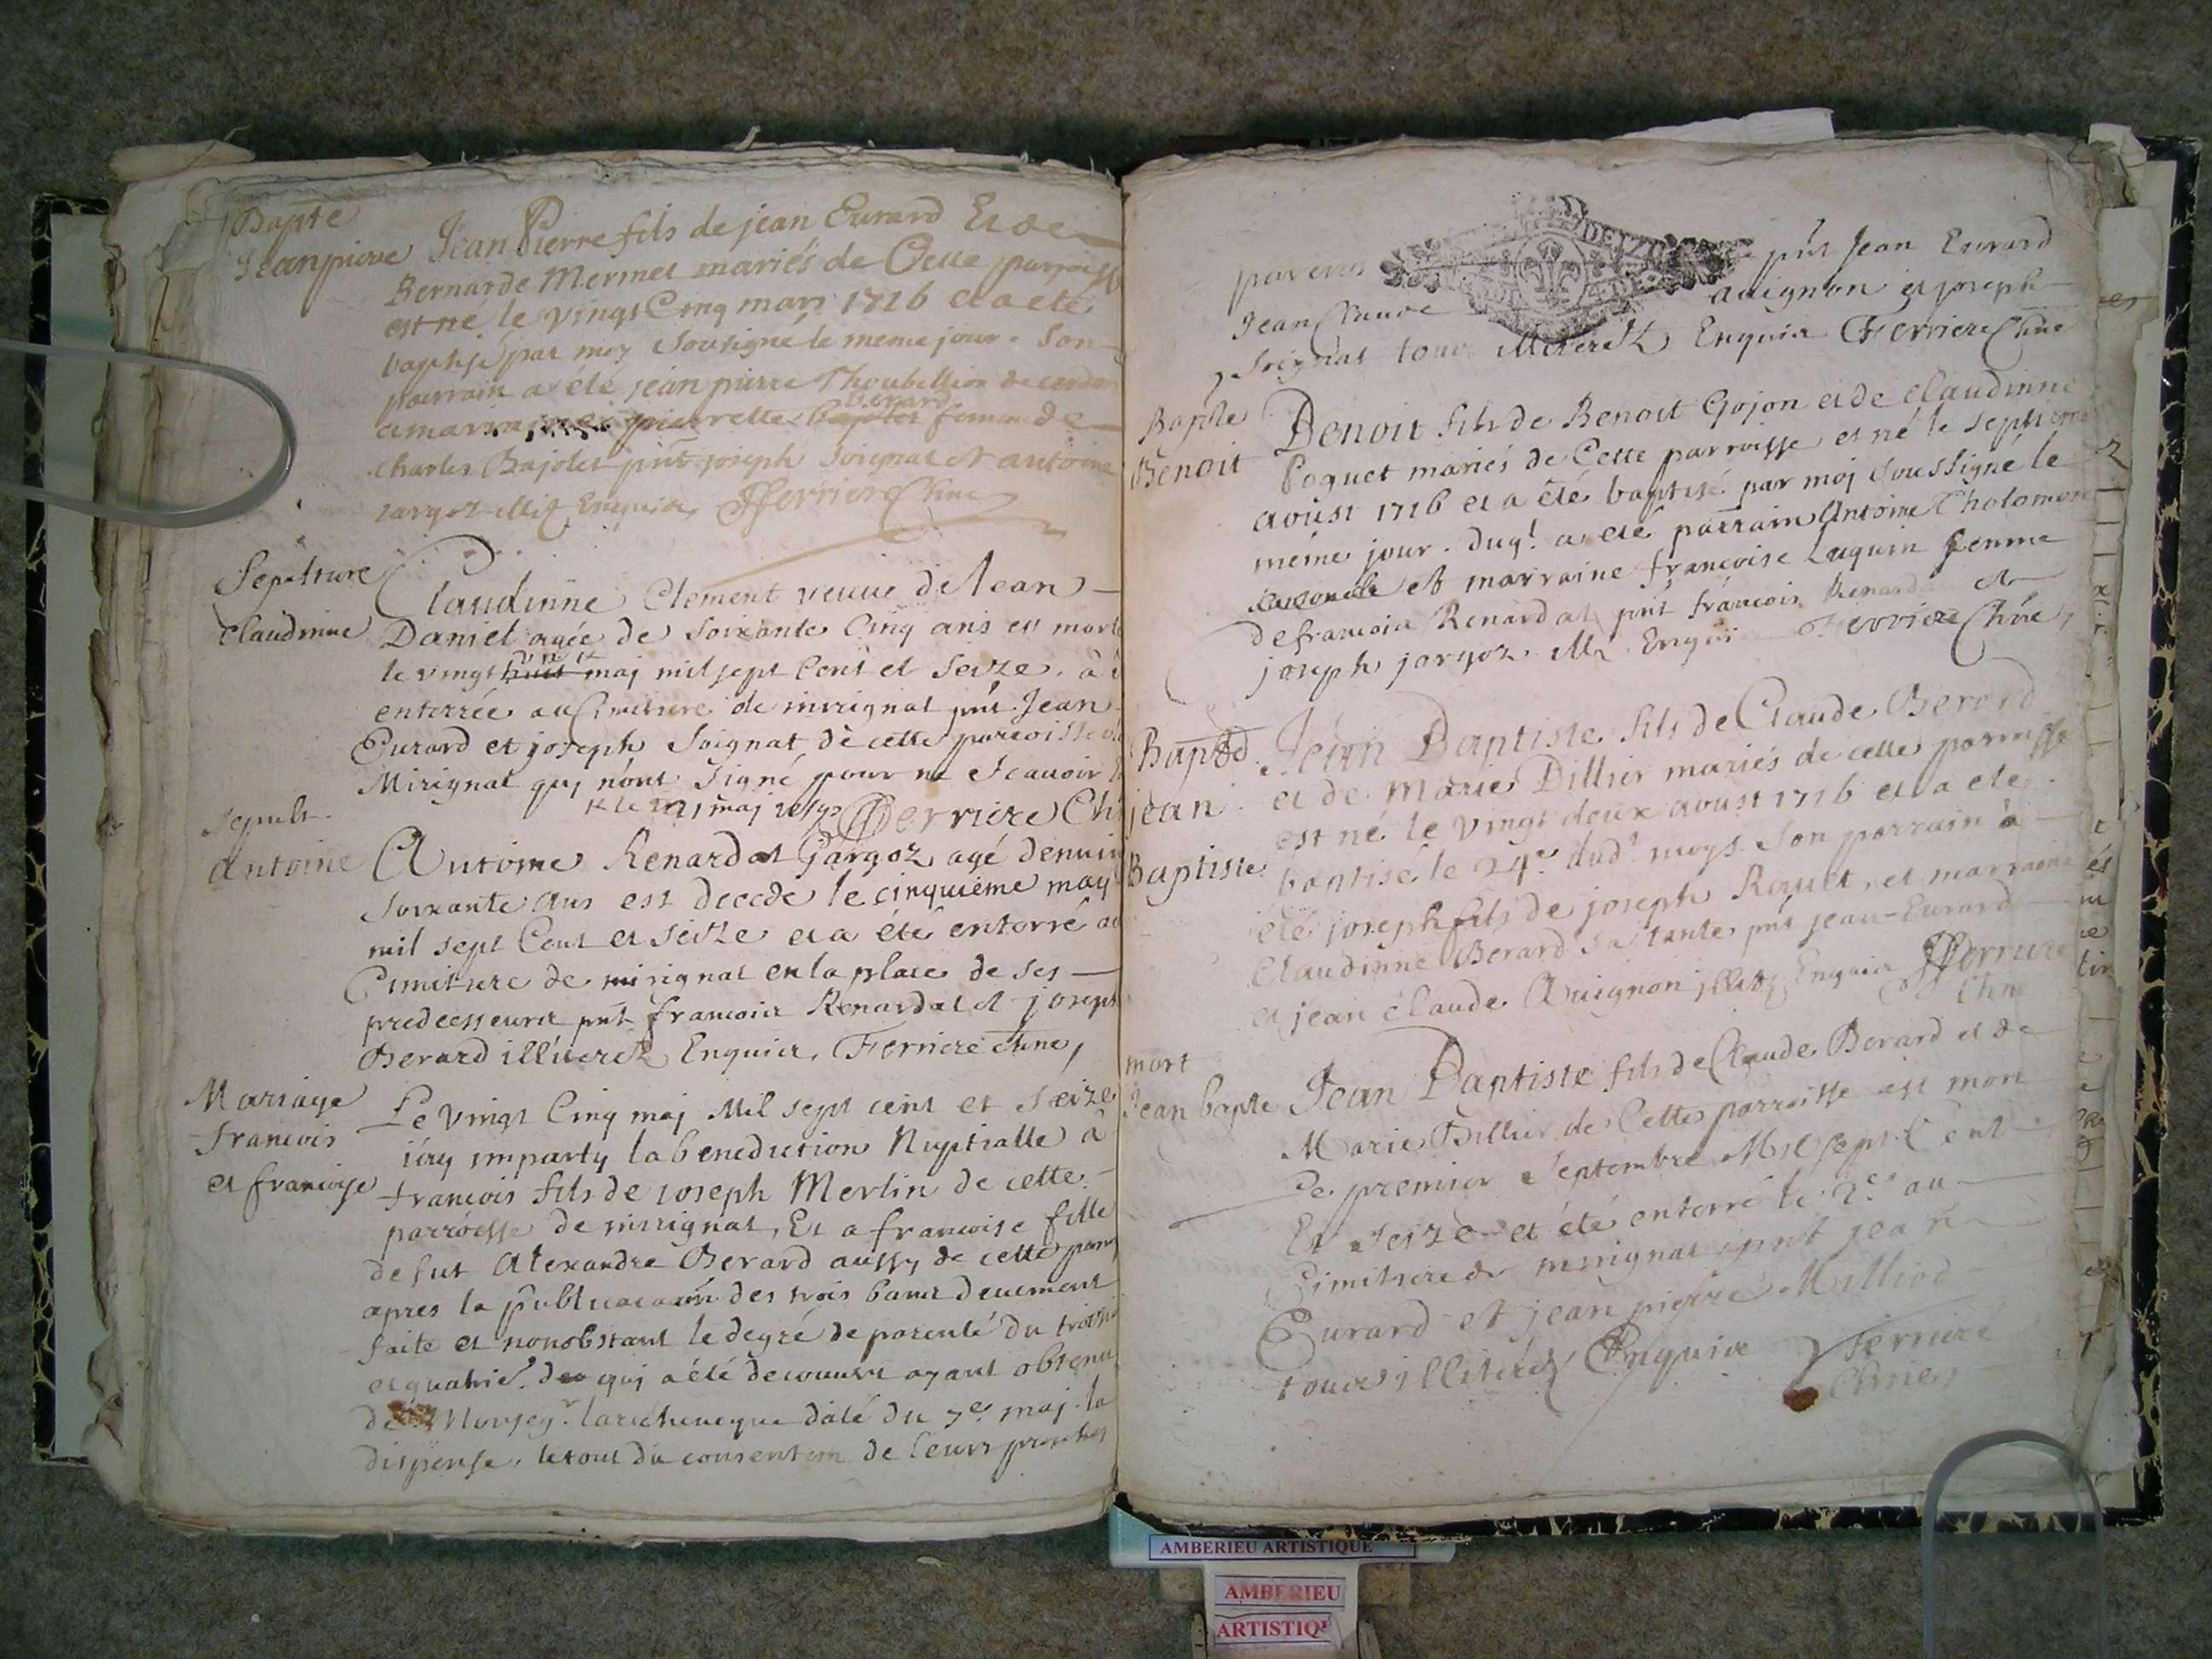 Bapte
Jeanpierre
Jean Pierre fils de jean Eurard Et de
Bernarde Mermet mariés de Cette parroisse
est né le vingt Cinq mars 1716 et a eté
baptisé par moy Sousigné le meme jour. Son
parrain a été jean pierre Thoubillion de
pierrette berard femme de
Charles Bajolet pnt joseph Soignat et antoine
jargoz illit Enquis, Fferriere Chne
Sepulture
Claudinne
Claudinne Clement veuve de Jean
Daniel agée de Soixante Cinq ans est morte
le vingt huit maj mil sept Cent et Seize. à
enterrée au Cimitiere de mirignat pnt. Jean
Eurard et joseph Soignat de cette parroisse
Mirignat quj n'ont Signé pour ne Scauoir
maj Fferriere Ch
Sepult.
Antoine
Antoine Renardat Gargoz agé denuiron
Soixante ans est decede le cinquieme may
mil sept Cent et Seize et a été enterré au
Cimitiere de mirignat en la place de ses
predecesseurs pnt francois Renardat et joseph
Berard illiterez Enquis, Ferriere chne,
Mariage
francois
et francoise
Le vingt Cinq maj Mil sept cent et Seize
j'ay imparty la benediction Nuptialle à
francois fils de joseph Merlin de cette
parroisse de mirignat, Et a francoise fille
de fut Alexandre Berard aussy de cette parr
apres la publicaõn des trois bans deuement
faite et nonobstant le degré de parenté du trois
et quatrie. quj a été decouuert ayant obtenu
de Monsegr. larcheueque daté du 7e. maj. la
dispense, le tout du consentem de leurs proches
parens pnt Jean Eurard
Jean Claude auignon et joseph
Soignat tous illiterez Enquis Ferriere Chne
Bapte
Benoit
Benoit fils de Benoit Gojon et de Claudinne
Poguet mariés de Cette parroisse et né le Septieme
aoust 1716 et a été baptisé par moj Soussigné le
méme jour. duql. a eté parrain Antoine Tholomon
et marraine francoise Luquin femme
de francois Renardat pnt francois Renard et
joseph jargoz. Ill Enquis Ferriere Chne,
Bapt
jean
Baptiste
Jean Baptiste fils de Claude Berard
et de Marie Dillier mariés de cette parroisse
est né le vingt deux aoust 1716 et a eté
baptisé le 24e. dudt moys. Son parrain à
eté joseph fils de joseph Roult, et marraine
Claudinne Berard Sa tante pnt jean-Eurard
et jean claude Auignon illitz Enquis Fferriere
Chne
mort
Jean bapte
Jean Baptiste fils de Claude Berard et de
Marie Dillier de Cette parroisse est mort
Le premier Septembre Mil Sept Cent
Et Seize et été enterré le 2e. au
Cimitiere de mirignat pnt jean
Eurard et jean pierre Milliod
tous illiterez Enquis Ferriere
Chne,
AMBERIEU ARTISTIQUE
AMBERIEU
ARTISTIQU